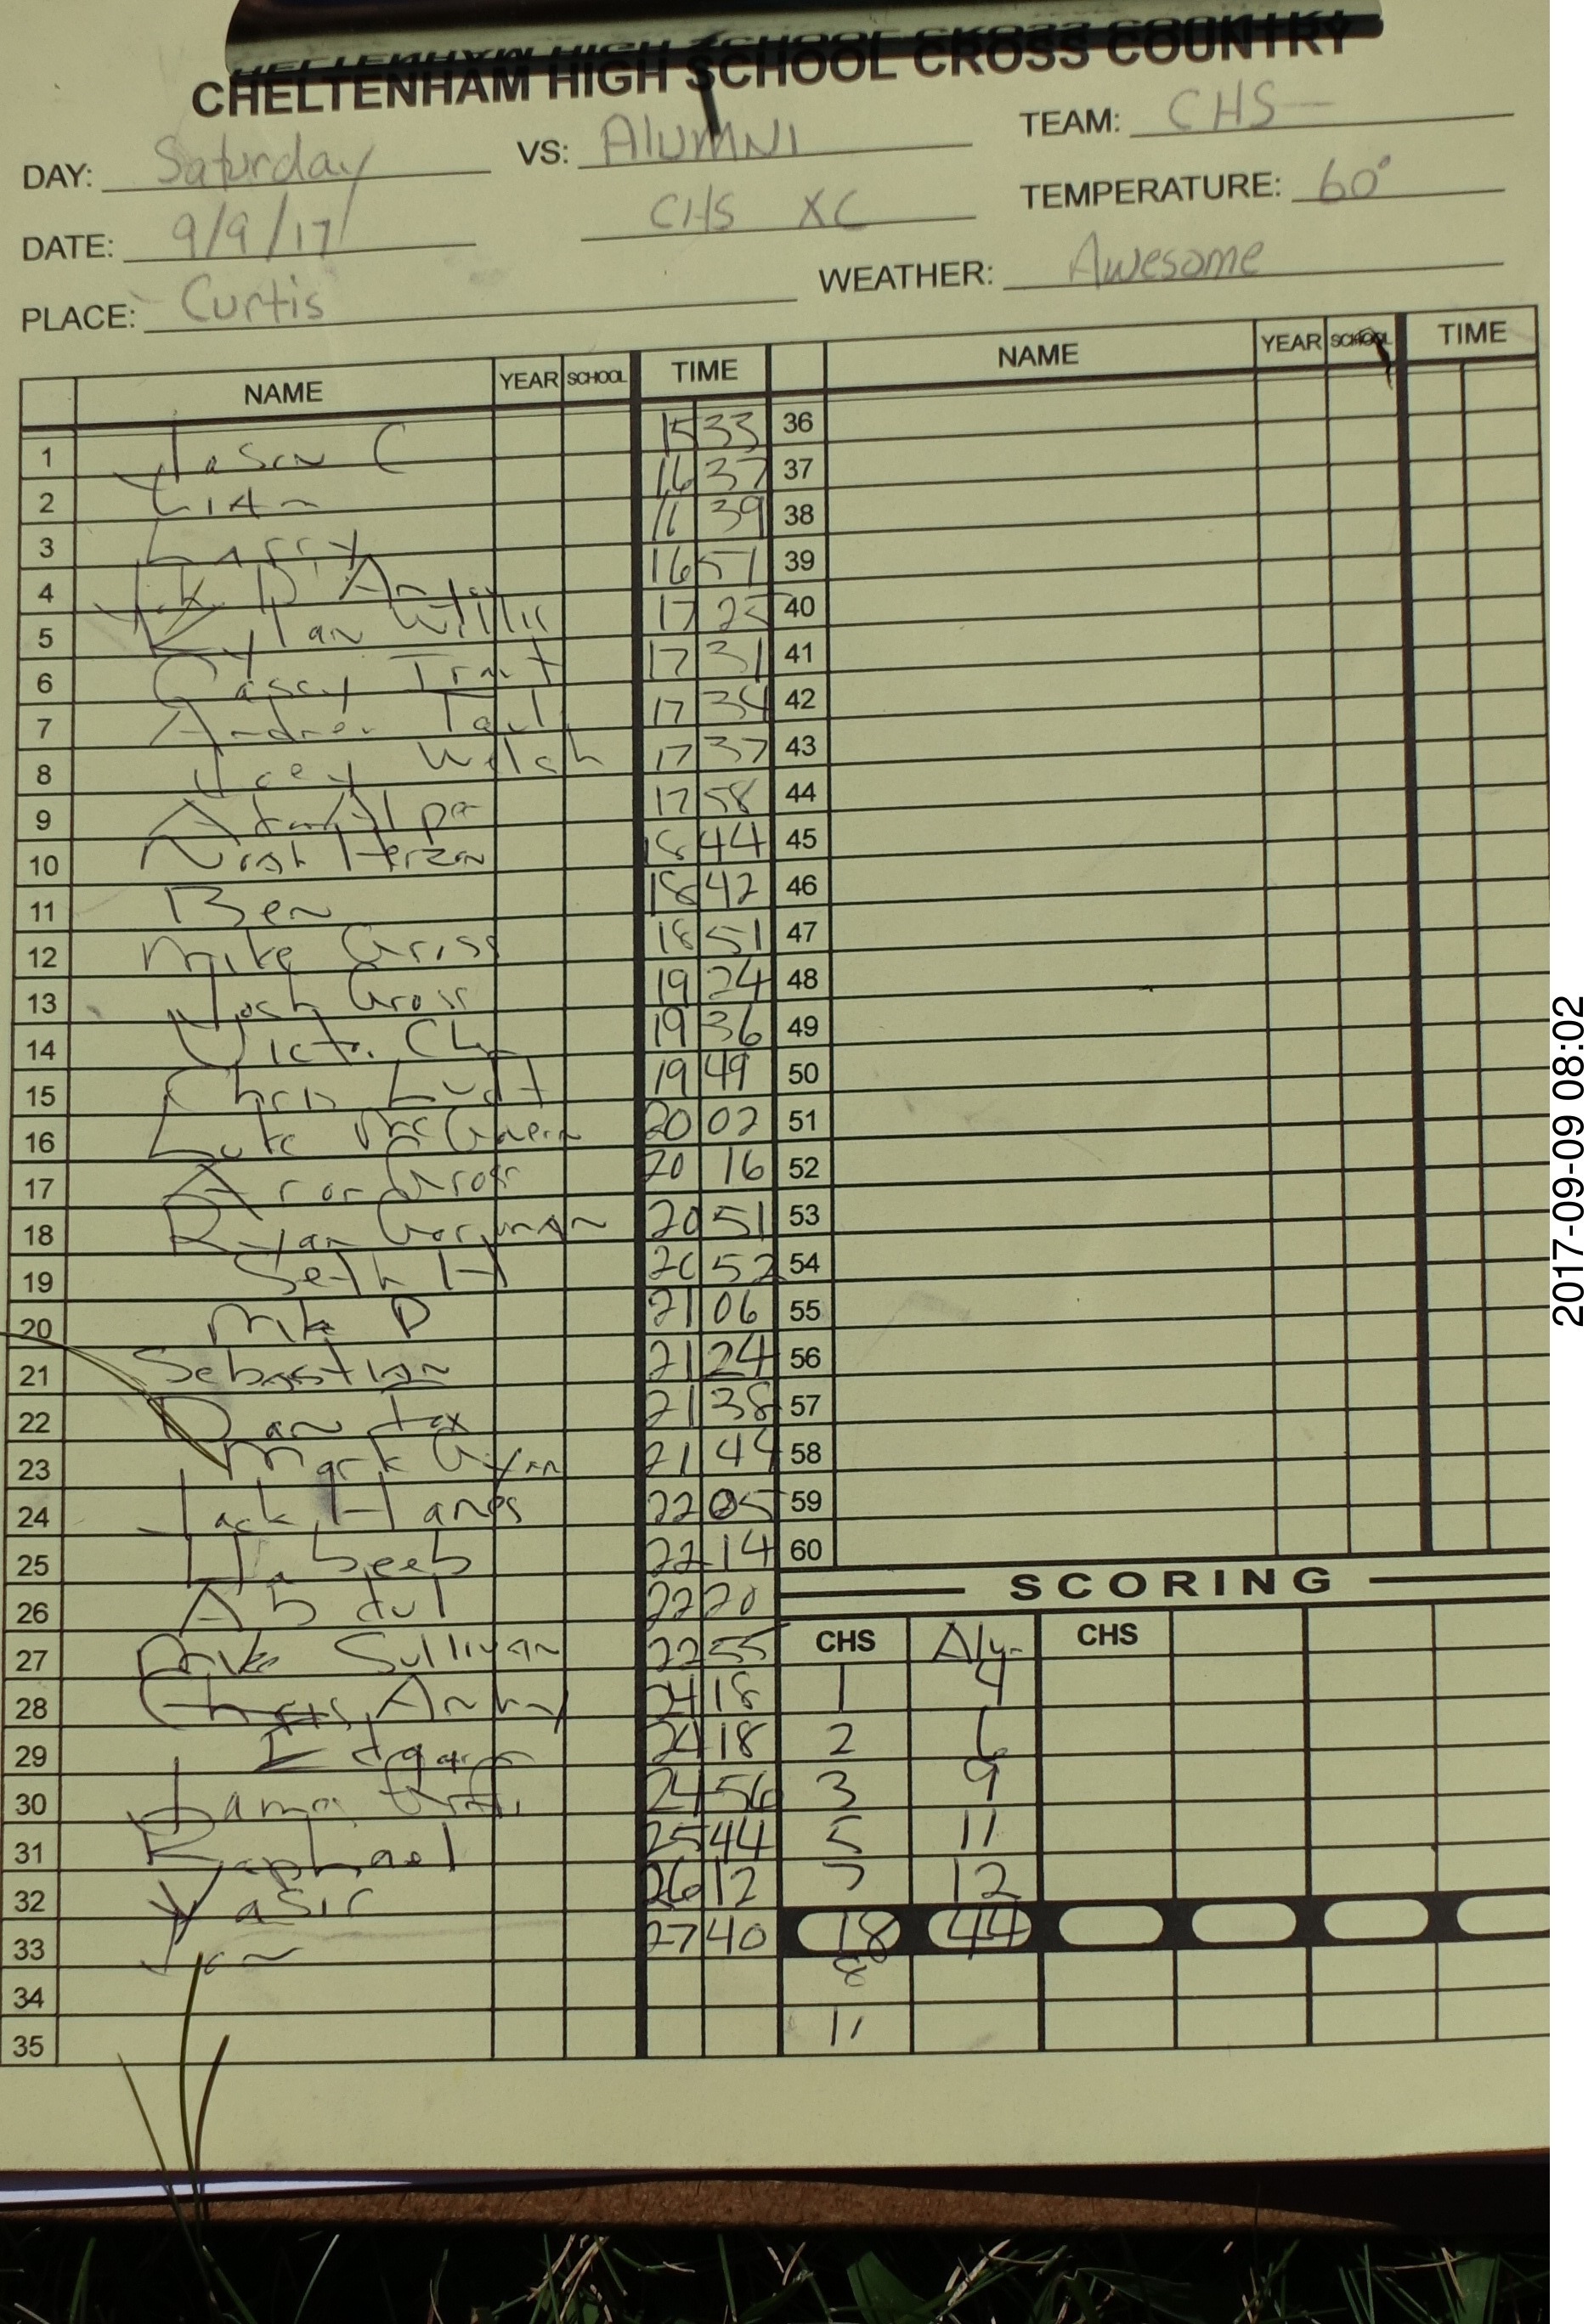 CHELTENHAM HIGH SCHOOL CROSS COUNTRY
DAY: Saturday VS: Alumni TEAM: CHS
DATE: 9/9/17 CHS XC TEMPERATURE: 60°
PLACE: Curtis WEATHER: Awesome
NAME YEAR SCHOOL TIME NAME YEAR SCHOOL TIME
1 Jason C 15 33 36
2 16 37 37
3 Larry 16 39 38
4 16 51 39
5 Kylan Willis 17 25 40
6 Casey 17 31 41
7 Andrew 17 34 42
8 Joey Welch 17 37 43
9 17 58 44
10 18 44 45
11 Ben 18 42 46
12 Mike Gross 18 51 47
13 Josh Gross 19 24 48
14 19 36 49
15 Chris Ludt 19 49 50
16 Luke 20 02 51
17 Aron Gross 20 16 52
18 Ryan Gorman 20 51 53
19 Seth H 20 52 54
20 Mike D 21 06 55
21 Sebastian 21 24 56
22 Dan Fox 21 38 57
23 Mark 21 44 58
24 Jack Hanes 22 05 59
25 Habeeb 22 14 60
26 Abdul 22 20
27 Mike Sullivan 22 55
28 Chris 24 18
29 Edgar 24 18
30 24 56
31 Raphael 25 44
32 Yasir 26 12
33 Jon 27 40
34
35
SCORING
CHS Alum CHS
1 4
2 6
3 9
5 11
7 12
18 44
8
11
2017-09-09 08:02